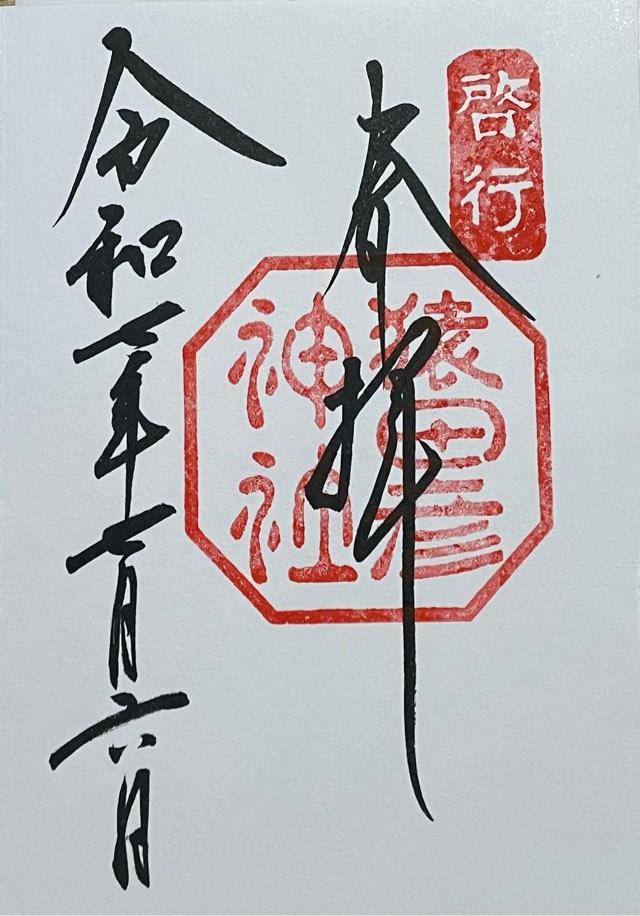 啓行
奉拝
猿田彦
神社
令和七年七月六日